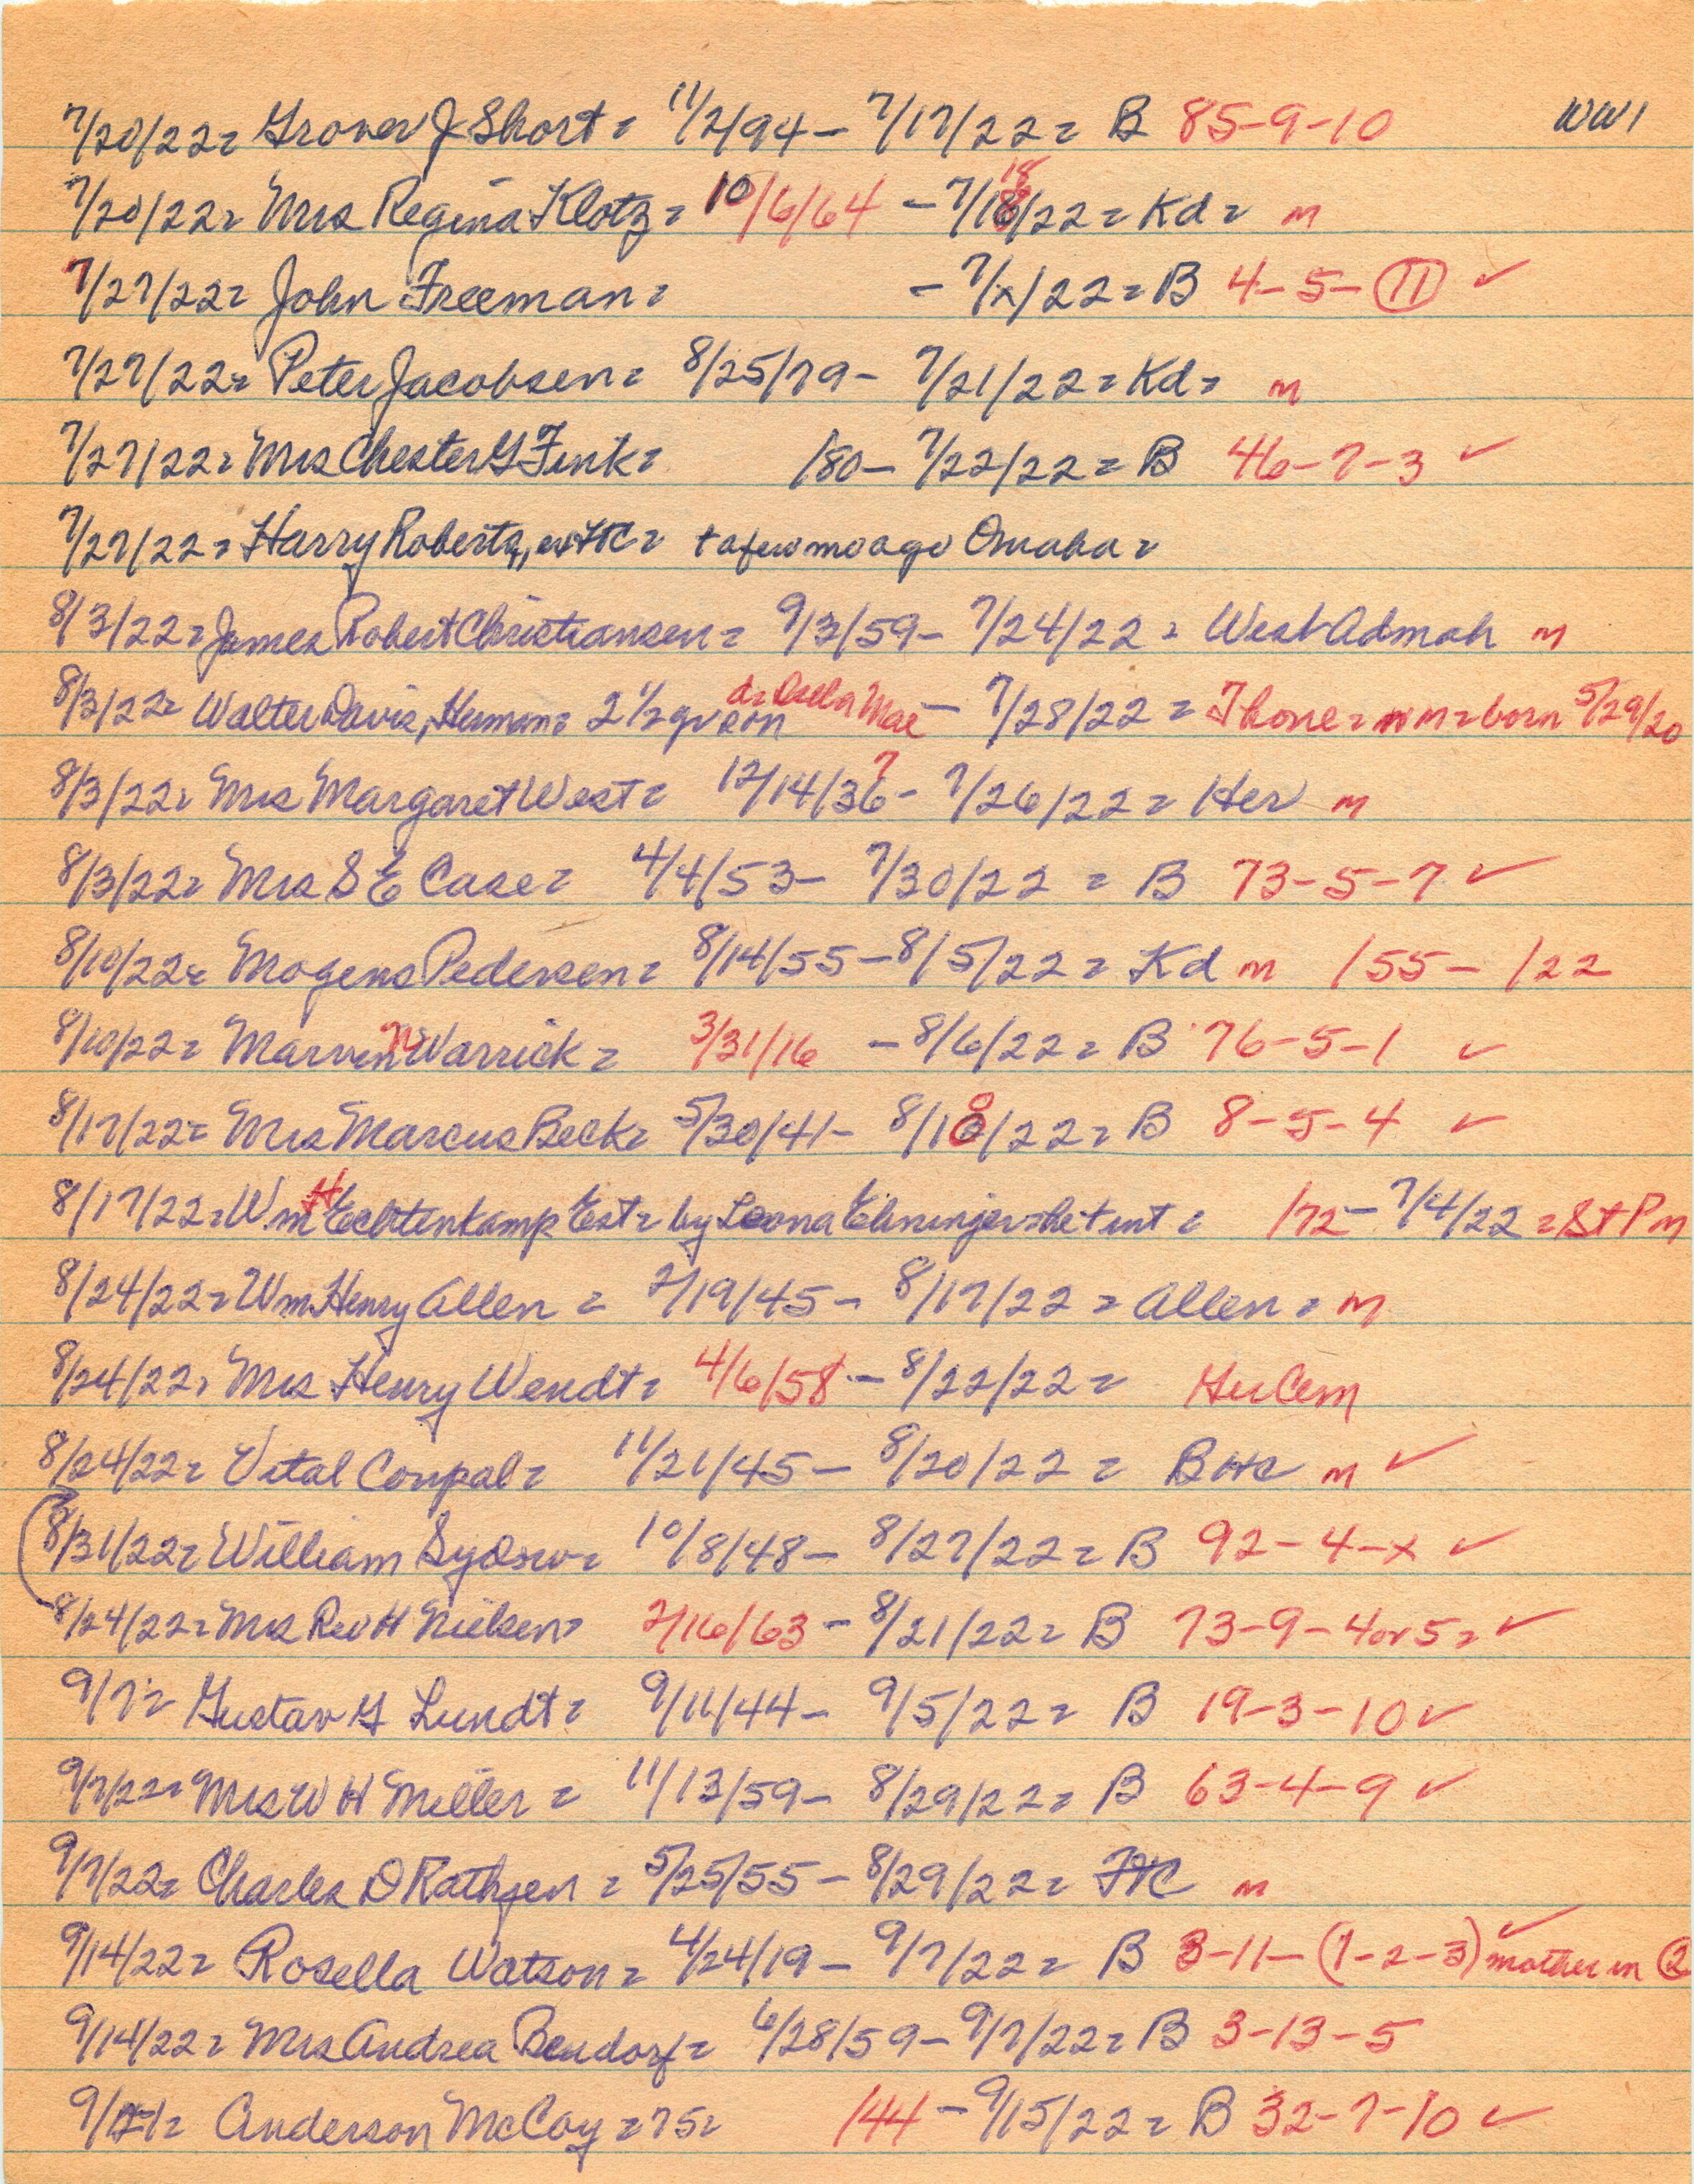 7/20/22= Grover J Short= 11/2/94 - 7/17/22= B 85-9-10 WW1
7/20/22= Mrs Regina Klotz= 10/6/64 - 7/18/22= Kd= m
7/27/22= John Freeman= - 7/x/22= B 4-5-(11) ✓
7/27/22= Peter Jacobsen= 8/25/79- 7/21/22= Kd= m
7/27/22= Mrs Chester G Fink= /80- 7/22/22= B 46-7-3 ✓
7/27/22= Harry Roberts, ex HC= + a few mo ago Omaha=
8/3/22= James Robert Christiansen= 9/3/59- 7/24/22= West Admah m
8/3/22= Walter Davis, Herman= 2 1/2 yr son d= Della Mae - 7/28/22= Thone= m= born 5/29/20
8/3/22= Mrs Margaret West= 12/14/36 7 - 7/26/22= Her m
8/3/22= Mrs S E Case= 4/4/53- 7/30/22= B 73-5-7 ✓
8/10/22= Mogens Pedersen= 8/14/55-8/5/22= Kd m /55- /22
8/10/22= Marven Warrick= 3/31/16 - 8/6/22= B 76-5-1 ✓
8/17/22= Mrs Marcus Beck= 5/30/41- 8/10/22= B 8-5-4 ✓
8/17/22= Wm H Echtenkamp Est= by Leona Ehninger= he + int= /72- 7/4/22= St P m
8/24/22= Wm. Henry Allen= 2/19/45- 8/17/22= Allen= m
8/24/22= Mrs Henry Wendt= 4/6/58 - 8/22/22= Her Cem
8/24/22= Vital Coupal= 11/21/45- 8/20/22= B HC m ✓
8/31/22= William Sydow= 10/8/48- 8/27/22= B 92-4-x ✓
8/24/22= Mrs Rev H Nielsen= 2/16/63 - 8/21/22= B 73-9-4 or 5= ✓
9/7= Gustav G Lundt= 9/11/44- 9/5/22= B 19-3-10 ✓
9/7/22= Mrs W H Miller= 11/13/59- 8/29/22= B 63-4-9 ✓
9/7/22= Charles D Rathjen= 5/25/55- 8/29/22= FtC m
9/14/22= Rosella Watson= 4/24/19- 9/7/22= B 3-11-(1-2-3) ✓ mother in (2)
9/14/22= Mrs Andrea Bendorf= 6/28/59- 9/7/22= B 3-13-5
Anderson McCoy= 75= /44 - 9/15/22= B 32-7-10 ✓